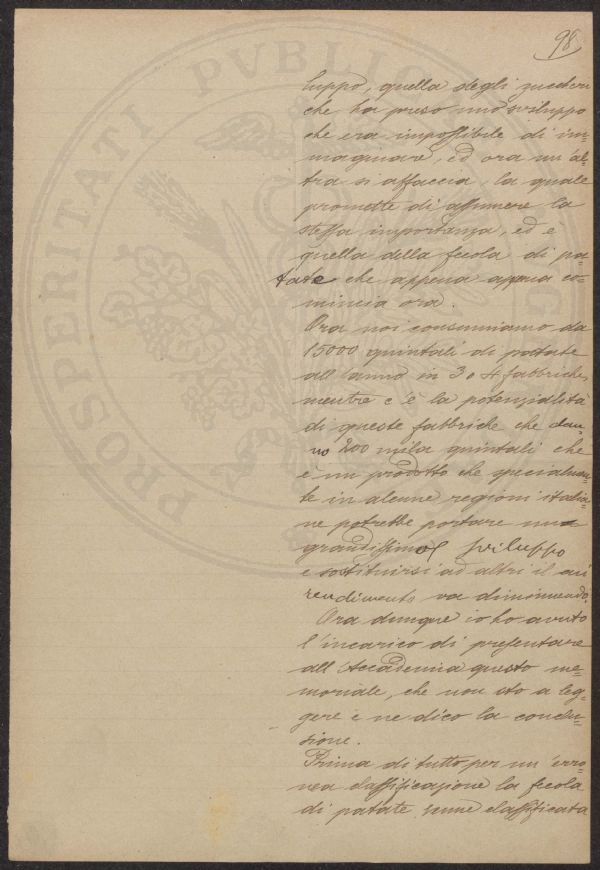 98
PROSPERITATI PVBLICAE
luppo, quella degli zuccheri
che ha preso uno sviluppo
che era impossibile di im-
maginare, ed ora un'al-
tra si affaccia, la quale
promette di assumere la
stessa importanza, ed è
quella della fecola di pa
tate che appena appena co-
mincia ora.
Ora noi consumiamo da
15000 quintali di patate
all'anno in 3 o 4 fabbriche,
mentre c'è la potenzialità
di queste fabbriche che dan-
no 200 mila quintali che
è un prodotto che specialmen-
te in alcune regioni italia-
ne potrebbe portare un
grandissimo sviluppo
e sostituirsi ad altri il cui
rendimento va diminuendo.
Ora dunque io ho avuto
l'incarico di presentare
all'Accademia questo me-
moriale, che non sto a leg-
gere e ne dico la conclu-
sione.
Prima di tutto per un'erro-
nea classificazione la fecola
di patate venne classificata